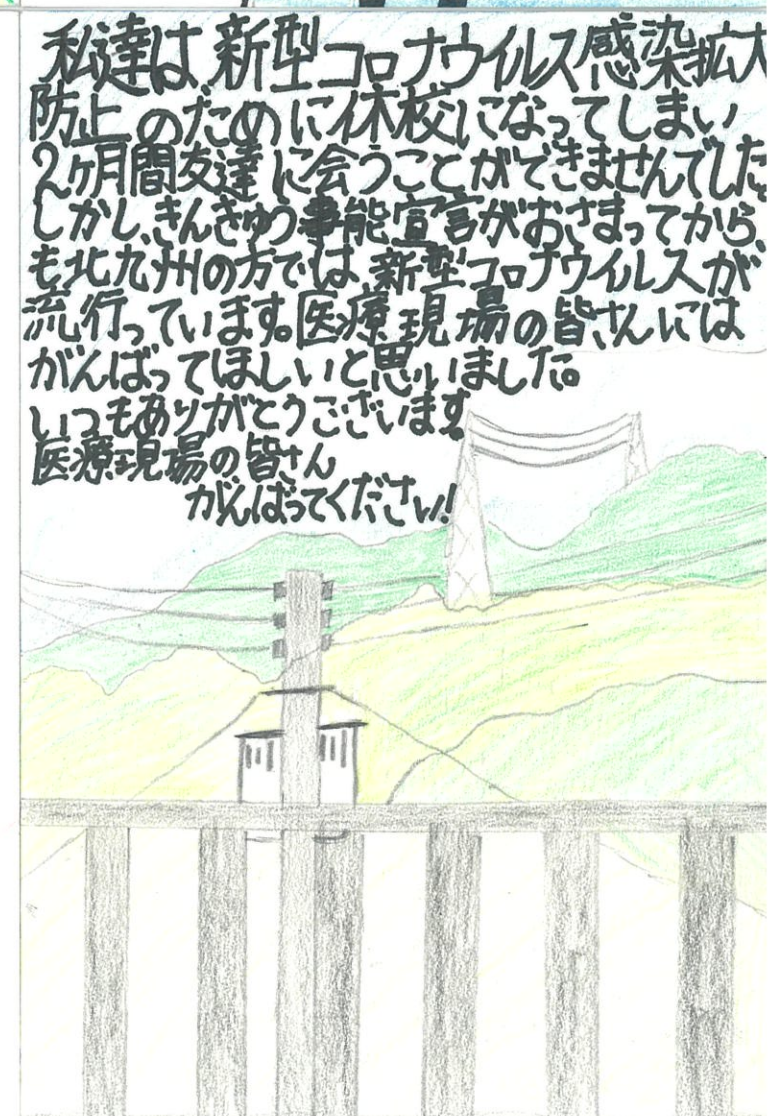 私達は新型コロナウイルス感染拡大
防止のために休校になってしまい
2ヶ月間友達に会うことができませんでした。
しかし、きんきゅう事能宣言がおさまってから
も北九州の方では新型コロナウイルスが
流行っています。医療現場の皆さんには
がんばってほしいと思いました。
いつもありがとうございます。
医療現場の皆さん
がんばってください!